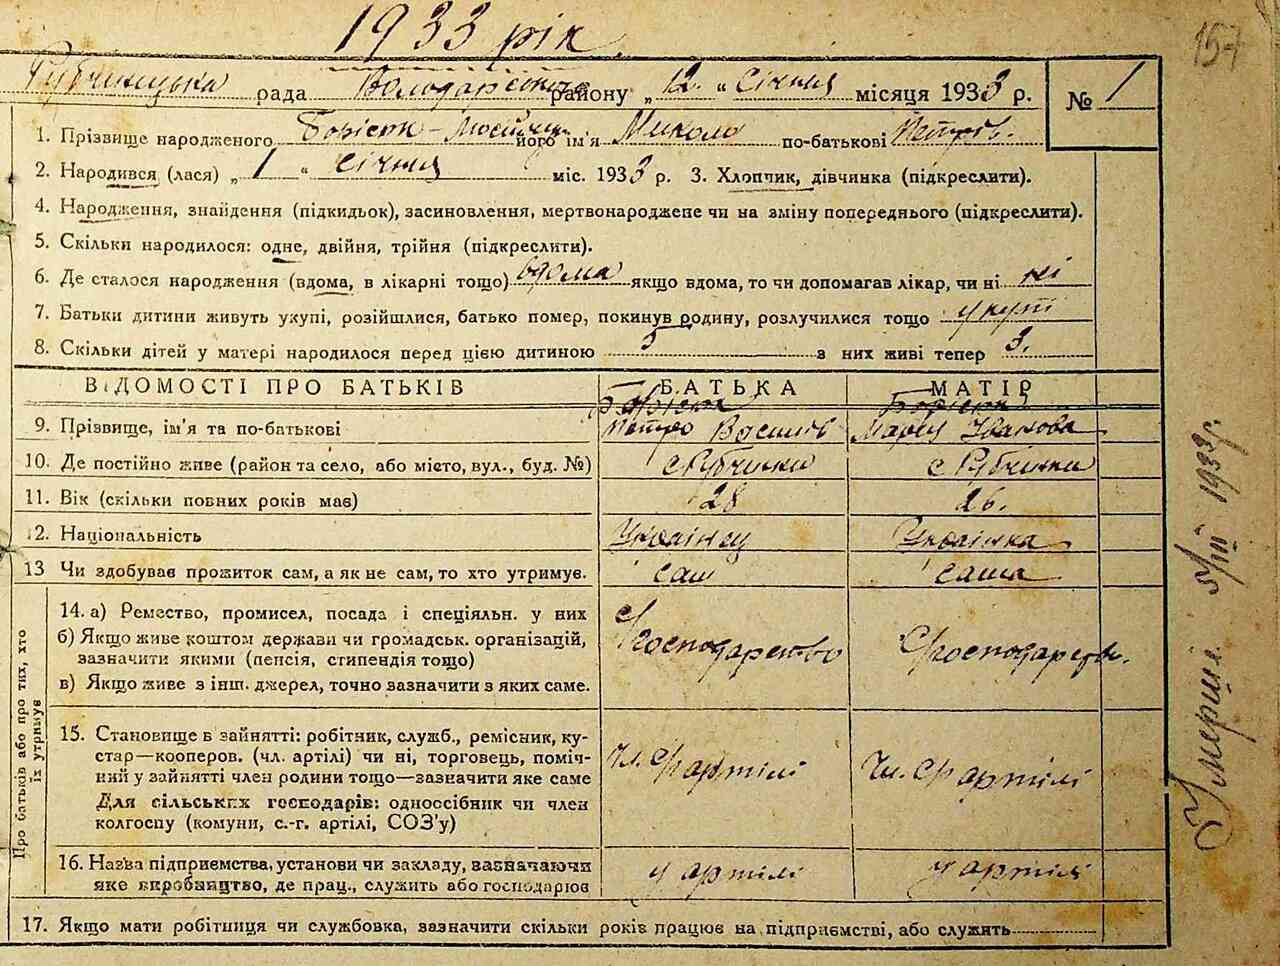 1933 рік.
157
Рубчинецька рада Володарського району „12„ січня місяця 1933 р. № 1
1. Прізвище народженого його ім'я Микола по-батькові Петрів.
2. Народився (лася) „1“ січня міс. 1933 р. 3. Хлопчик, дівчинка (підкреслити).
4. Народження, знайдення (підкидьок), засиновлення, мертвонароджене чи на зміну попереднього (підкреслити).
5. Скільки народилося: одне, двійня, трійня (підкреслити).
6. Де сталося народження (вдома, в лікарні тощо) вдома якщо вдома, то чи допомагав лікар, чи ні ні
7. Батьки дитини живуть укупі, розійшлися, батько помер, покинув родину, розлучилися тощо укупі
8. Скільки дітей у матері народилося перед цією дитиною 5 з них живі тепер 3.
ВІДОМОСТІ ПРО БАТЬКІВ БАТЬКА МАТІР
9. Прізвище, ім'я та по-батькові Петро Васильів Марія Іванова
10. Де постійно живе (район та село, або місто, вул., буд. №) с Рубчинки с Рубчинки
11. Вік (скільки повних років має) 28 26.
12. Національність Українец Українка
13 Чи здобуває прожиток сам, а як не сам, то хто утримує. сам сама
Про батьків або про тих, хто їх утримує
14. а) Ремество, промисел, посада і спеціяльн. у них
б) Якщо живе коштом держави чи громадськ. організацій,
зазначити якими (пенсія, стипендія тощо)
в) Якщо живе з інш. джерел, точно зазначити з яких саме.
С/господарство С/господарств.
15. Становище в зайнятті: робітник, служб., ремісник, ку-
стар—кооперов. (чл. артілі) чи ні, торговець, поміч-
ний у зайнятті член родини тощо—зазначити яке саме
Для сільських господарів: одноосібник чи член
колгоспу (комуни, с.-г. артілі, СОЗ'у)
Чл. С/г артілі Чл. С/г артілі
16. Назва підприємства, установи чи закладу, зазначаючи
яке виробництво, де прац., служить або господарює
у артілі у артілі
17. Якщо мати робітниця чи службовка, зазначити скільки років працює на підприємстві, або служить
1933 р.